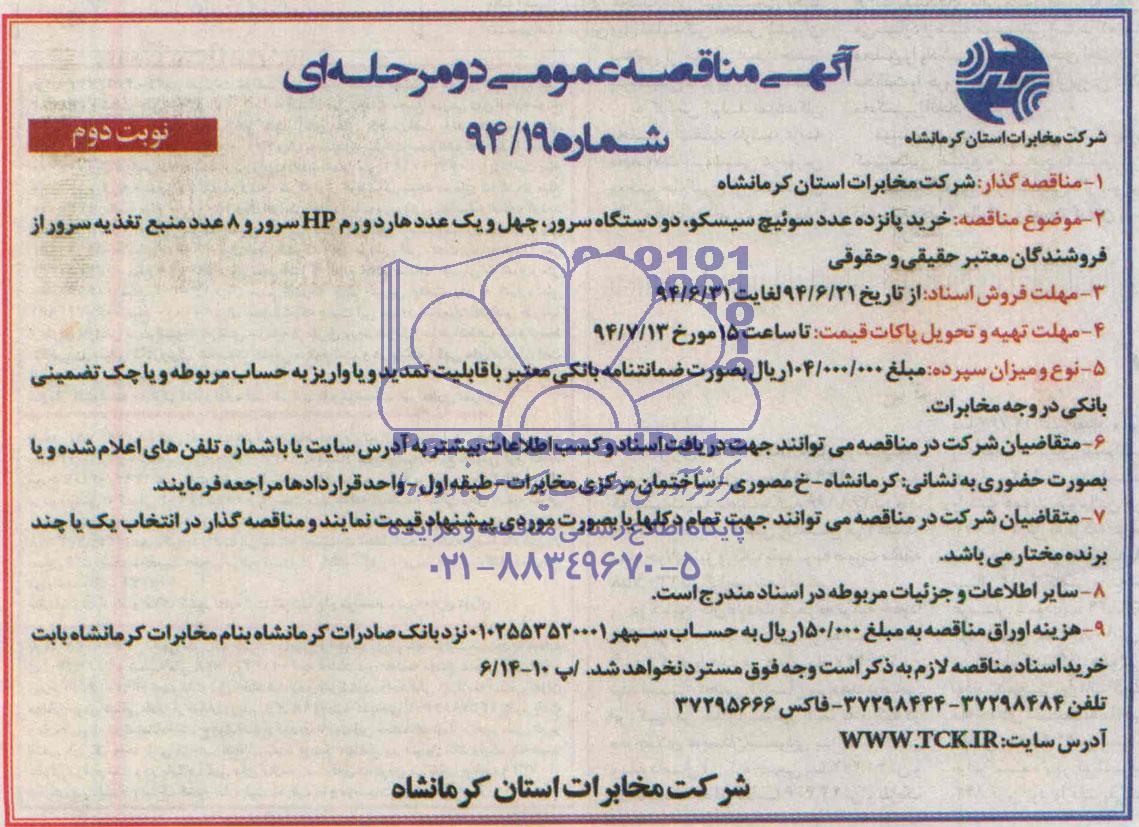 آگهی مناقصه عمومی دو مرحله‌ای
شرکت مخابرات استان کرمانشاه
شماره ۹۴/۱۹
نوبت دوم
۱- مناقصه گذار: شرکت مخابرات استان کرمانشاه
۲- موضوع مناقصه: خرید پانزده عدد سوئیچ سیسکو، دو دستگاه سرور، چهل و یک عدد هارد و رم HP سرور و ۸ عدد منبع تغذیه سرور از
فروشندگان معتبر حقیقی و حقوقی
۳- مهلت فروش اسناد: از تاریخ ۹۴/۶/۲۱ لغایت ۹۴/۶/۳۱
۴- مهلت تهیه و تحویل پاکات قیمت: تا ساعت ۱۵ مورخ ۹۴/۷/۱۳
۵- نوع و میزان سپرده: مبلغ ۱۰۴/۰۰۰/۰۰۰ ریال بصورت ضمانتنامه بانکی معتبر با قابلیت تمدید و یا واریز به حساب مربوطه و یا چک تضمینی
بانکی در وجه مخابرات.
۶- متقاضیان شرکت در مناقصه می توانند جهت دریافت اسناد و کسب اطلاعات بیشتر به آدرس سایت یا با شماره تلفن های اعلام شده و یا
بصورت حضوری به نشانی: کرمانشاه - خ مصوری - ساختمان مرکزی مخابرات - طبقه اول - واحد قراردادها مراجعه فرمایند.
۷- متقاضیان شرکت در مناقصه می توانند جهت تمام دکلها یا بصورت موردی پیشنهاد قیمت نمایند و مناقصه گذار در انتخاب یک یا چند
پایگاه اطلاع رسانی مناقصه و مزایده
برنده مختار می باشد.
۰۲۱-۸۸۳۴۹۶۷۰-۵
۸- سایر اطلاعات و جزئیات مربوطه در اسناد مندرج است.
۹- هزینه اوراق مناقصه به مبلغ ۱۵۰/۰۰۰ ریال به حساب سپهر ۰۱۰۲۵۵۳۵۲۰۰۰۱ نزد بانک صادرات کرمانشاه بنام مخابرات کرمانشاه بابت
خرید اسناد مناقصه لازم به ذکر است وجه فوق مسترد نخواهد شد. /پ ۱۰-۶/۱۴
تلفن ۳۷۲۹۸۴۸۴ - ۳۷۲۹۸۴۴۴ - فاکس ۳۷۲۹۵۶۶۶
آدرس سایت: WWW.TCK.IR
شرکت مخابرات استان کرمانشاه